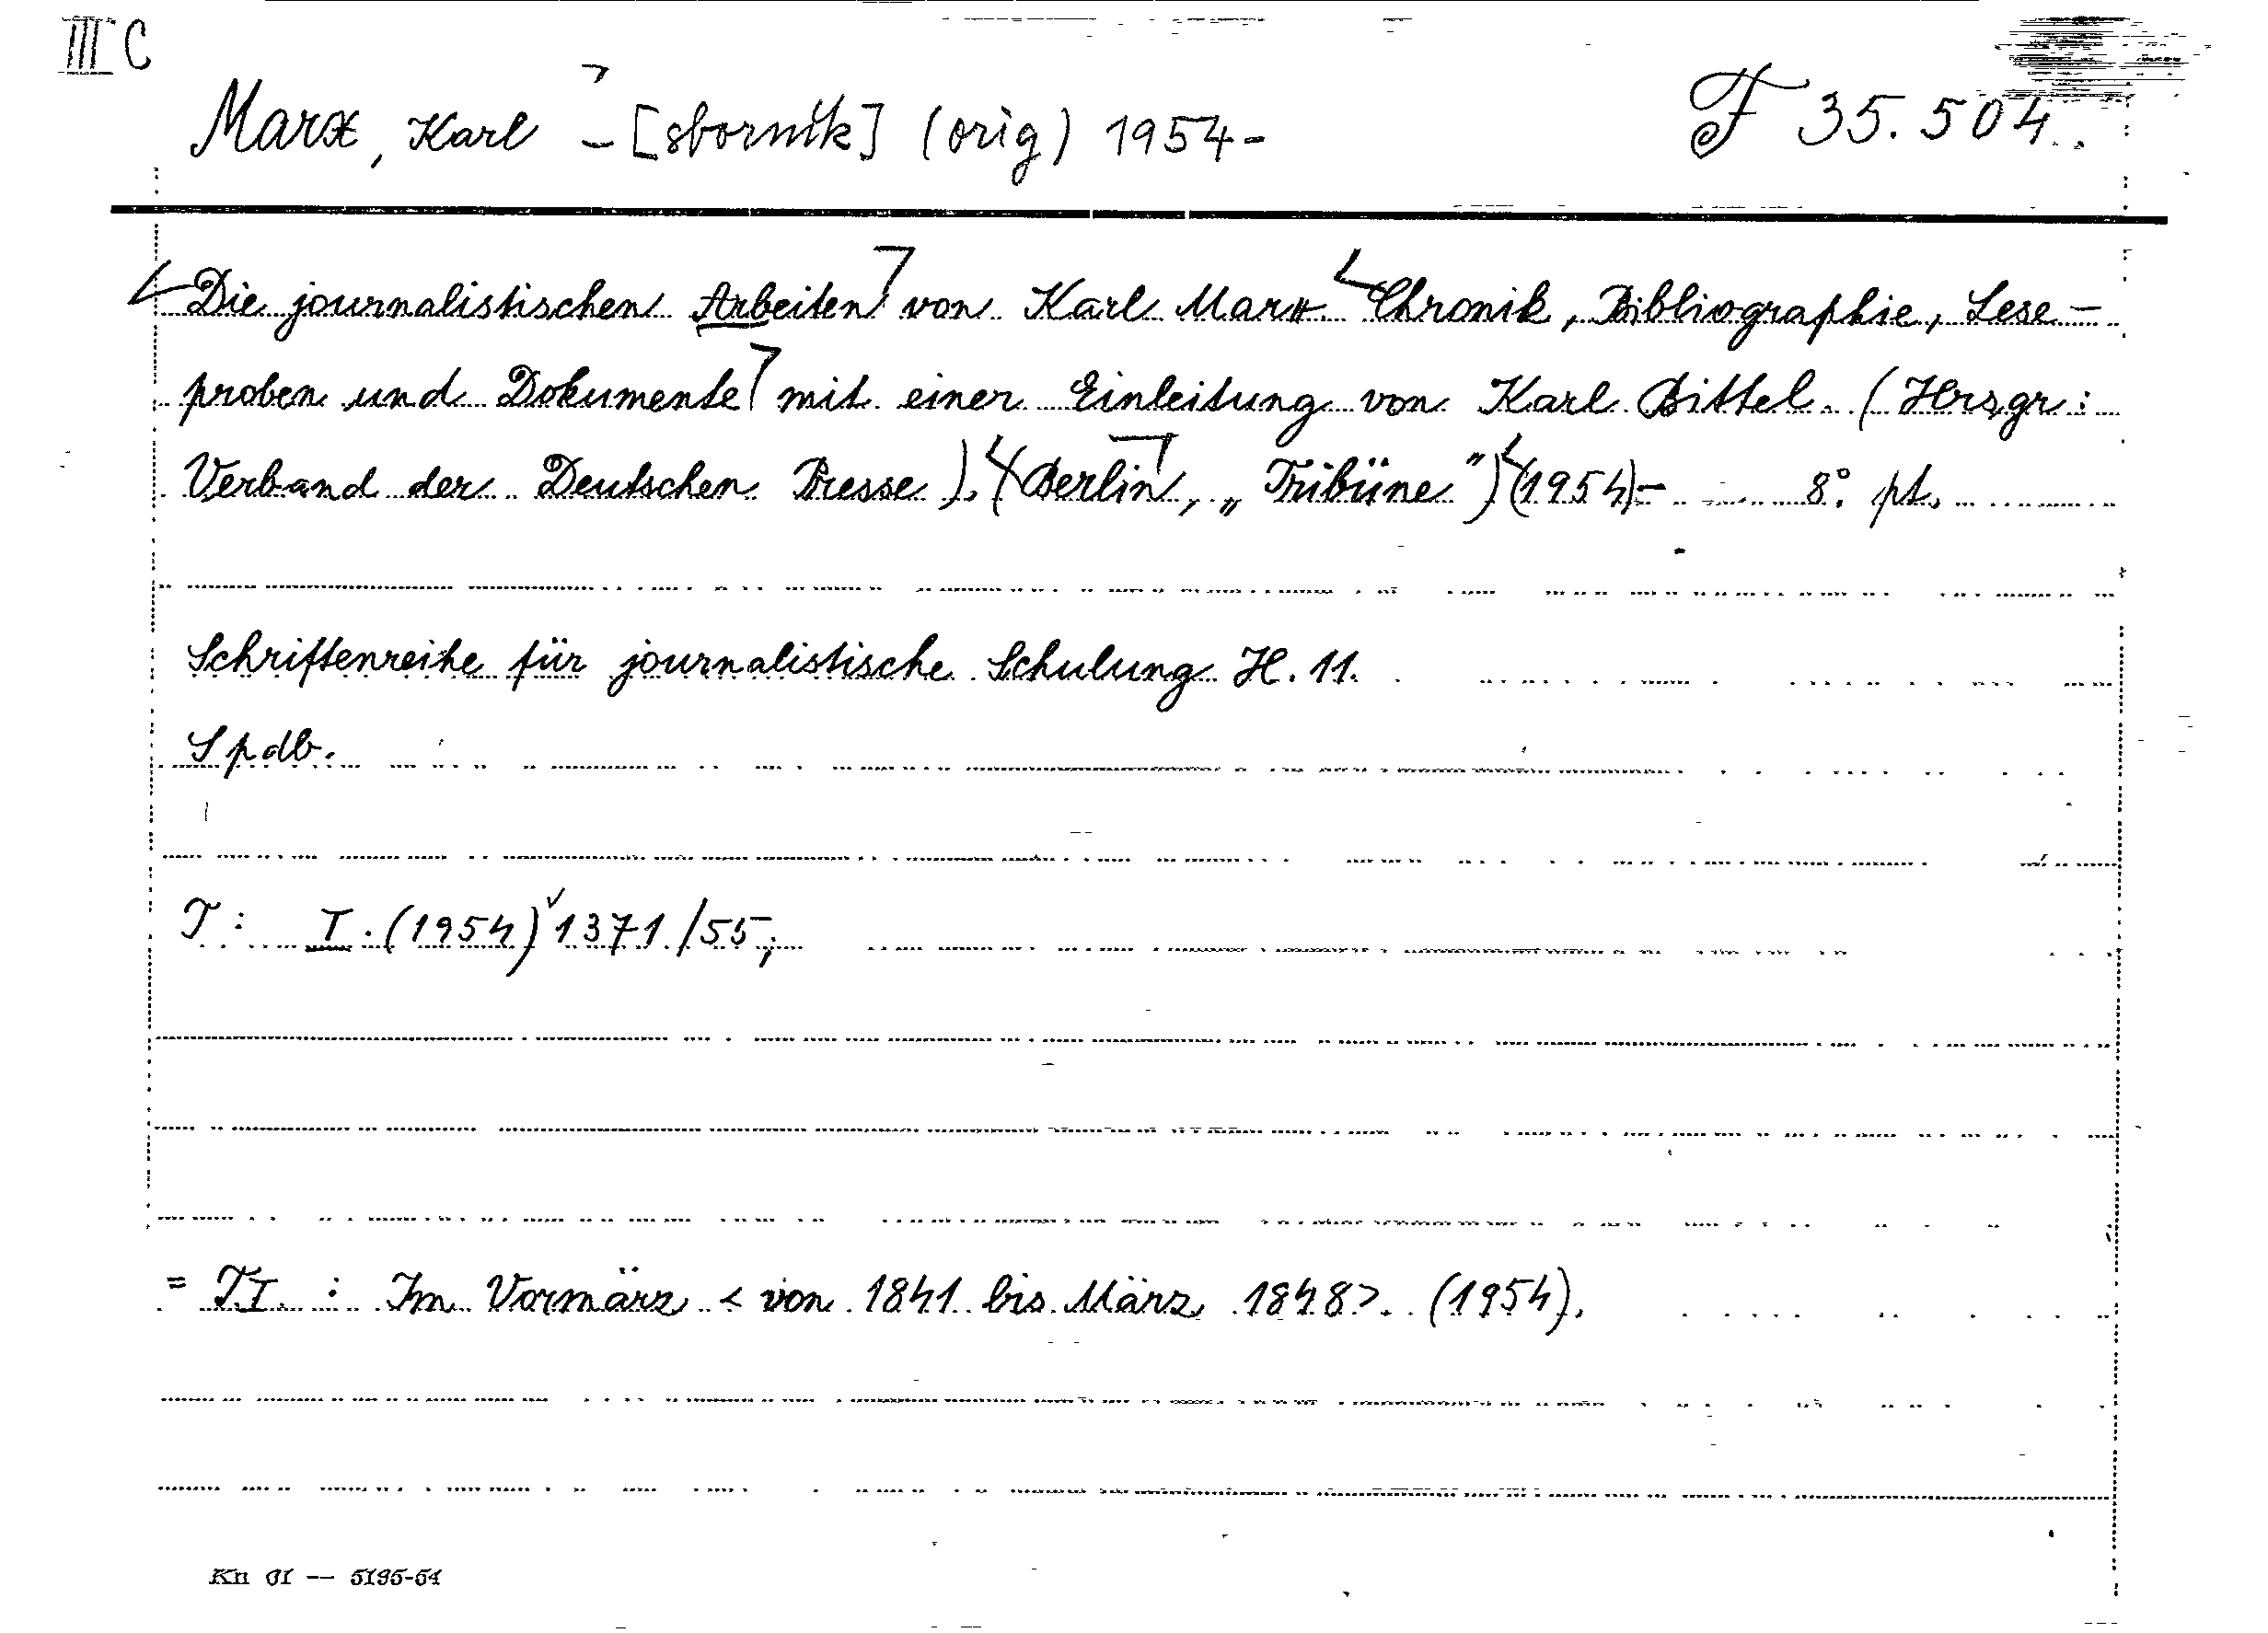 III C
Marx, Karl – [sborník] (orig) 1954-
F 35.504.
Die journalistischen Arbeiten von Karl Marx Chronik, Bibliographie, Lese-
proben und Dokumente mit einer Einleitung von Karl Bittel. (Hrsgr:
Verband der Deutschen Presse). (Berlin, „Tribüne") (1954)- 8°. pt.
Schriftenreihe für journalistische Schulung H. 11.
Spdb.
T: I. (1954) 1371/55,
= T.I. : Im Vormärz < von 1841 bis März 1848>. (1954).
Kn 01 — 5195-54